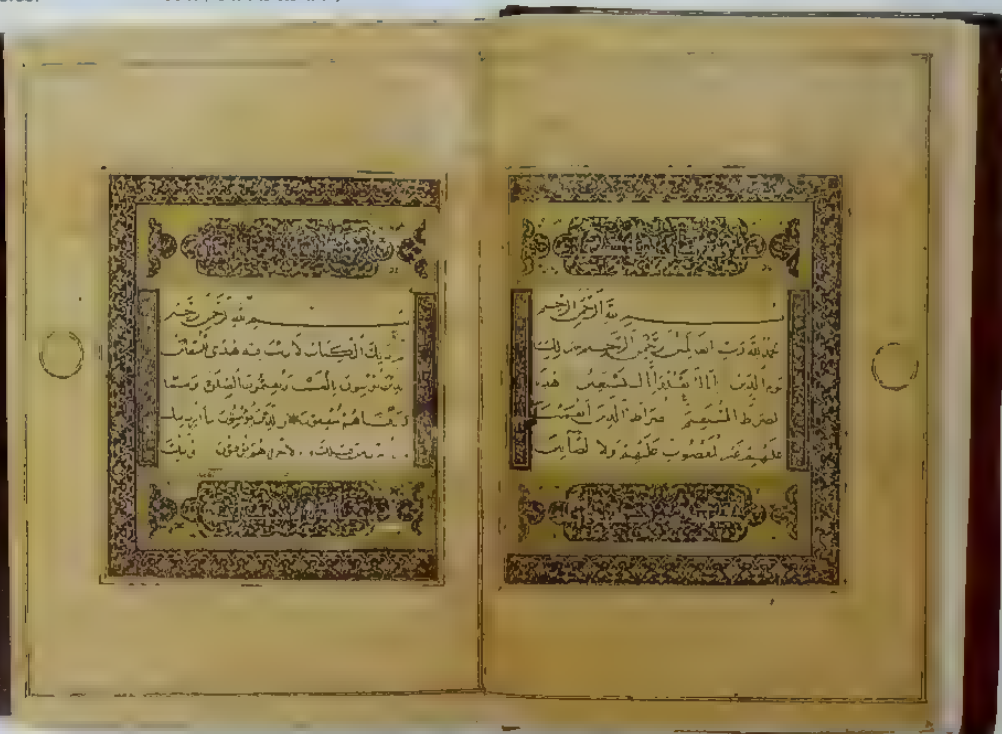 بسم الله الرحمن الرحيم
الحمد لله رب العالمين الرحمن الرحيم مالك
يوم الدين إياك نعبد وإياك نستعين اهدنا
الصراط المستقيم صراط الذين أنعمت
عليهم غير المغضوب عليهم ولا الضالين
بسم الله الرحمن الرحيم
الم ذلك الكتاب لا ريب فيه هدى للمتقين
الذين يؤمنون بالغيب ويقيمون الصلوة ومما
رزقناهم ينفقون والذين يؤمنون بما أنزل إليك
من قبلك هم يوقنون أولئك